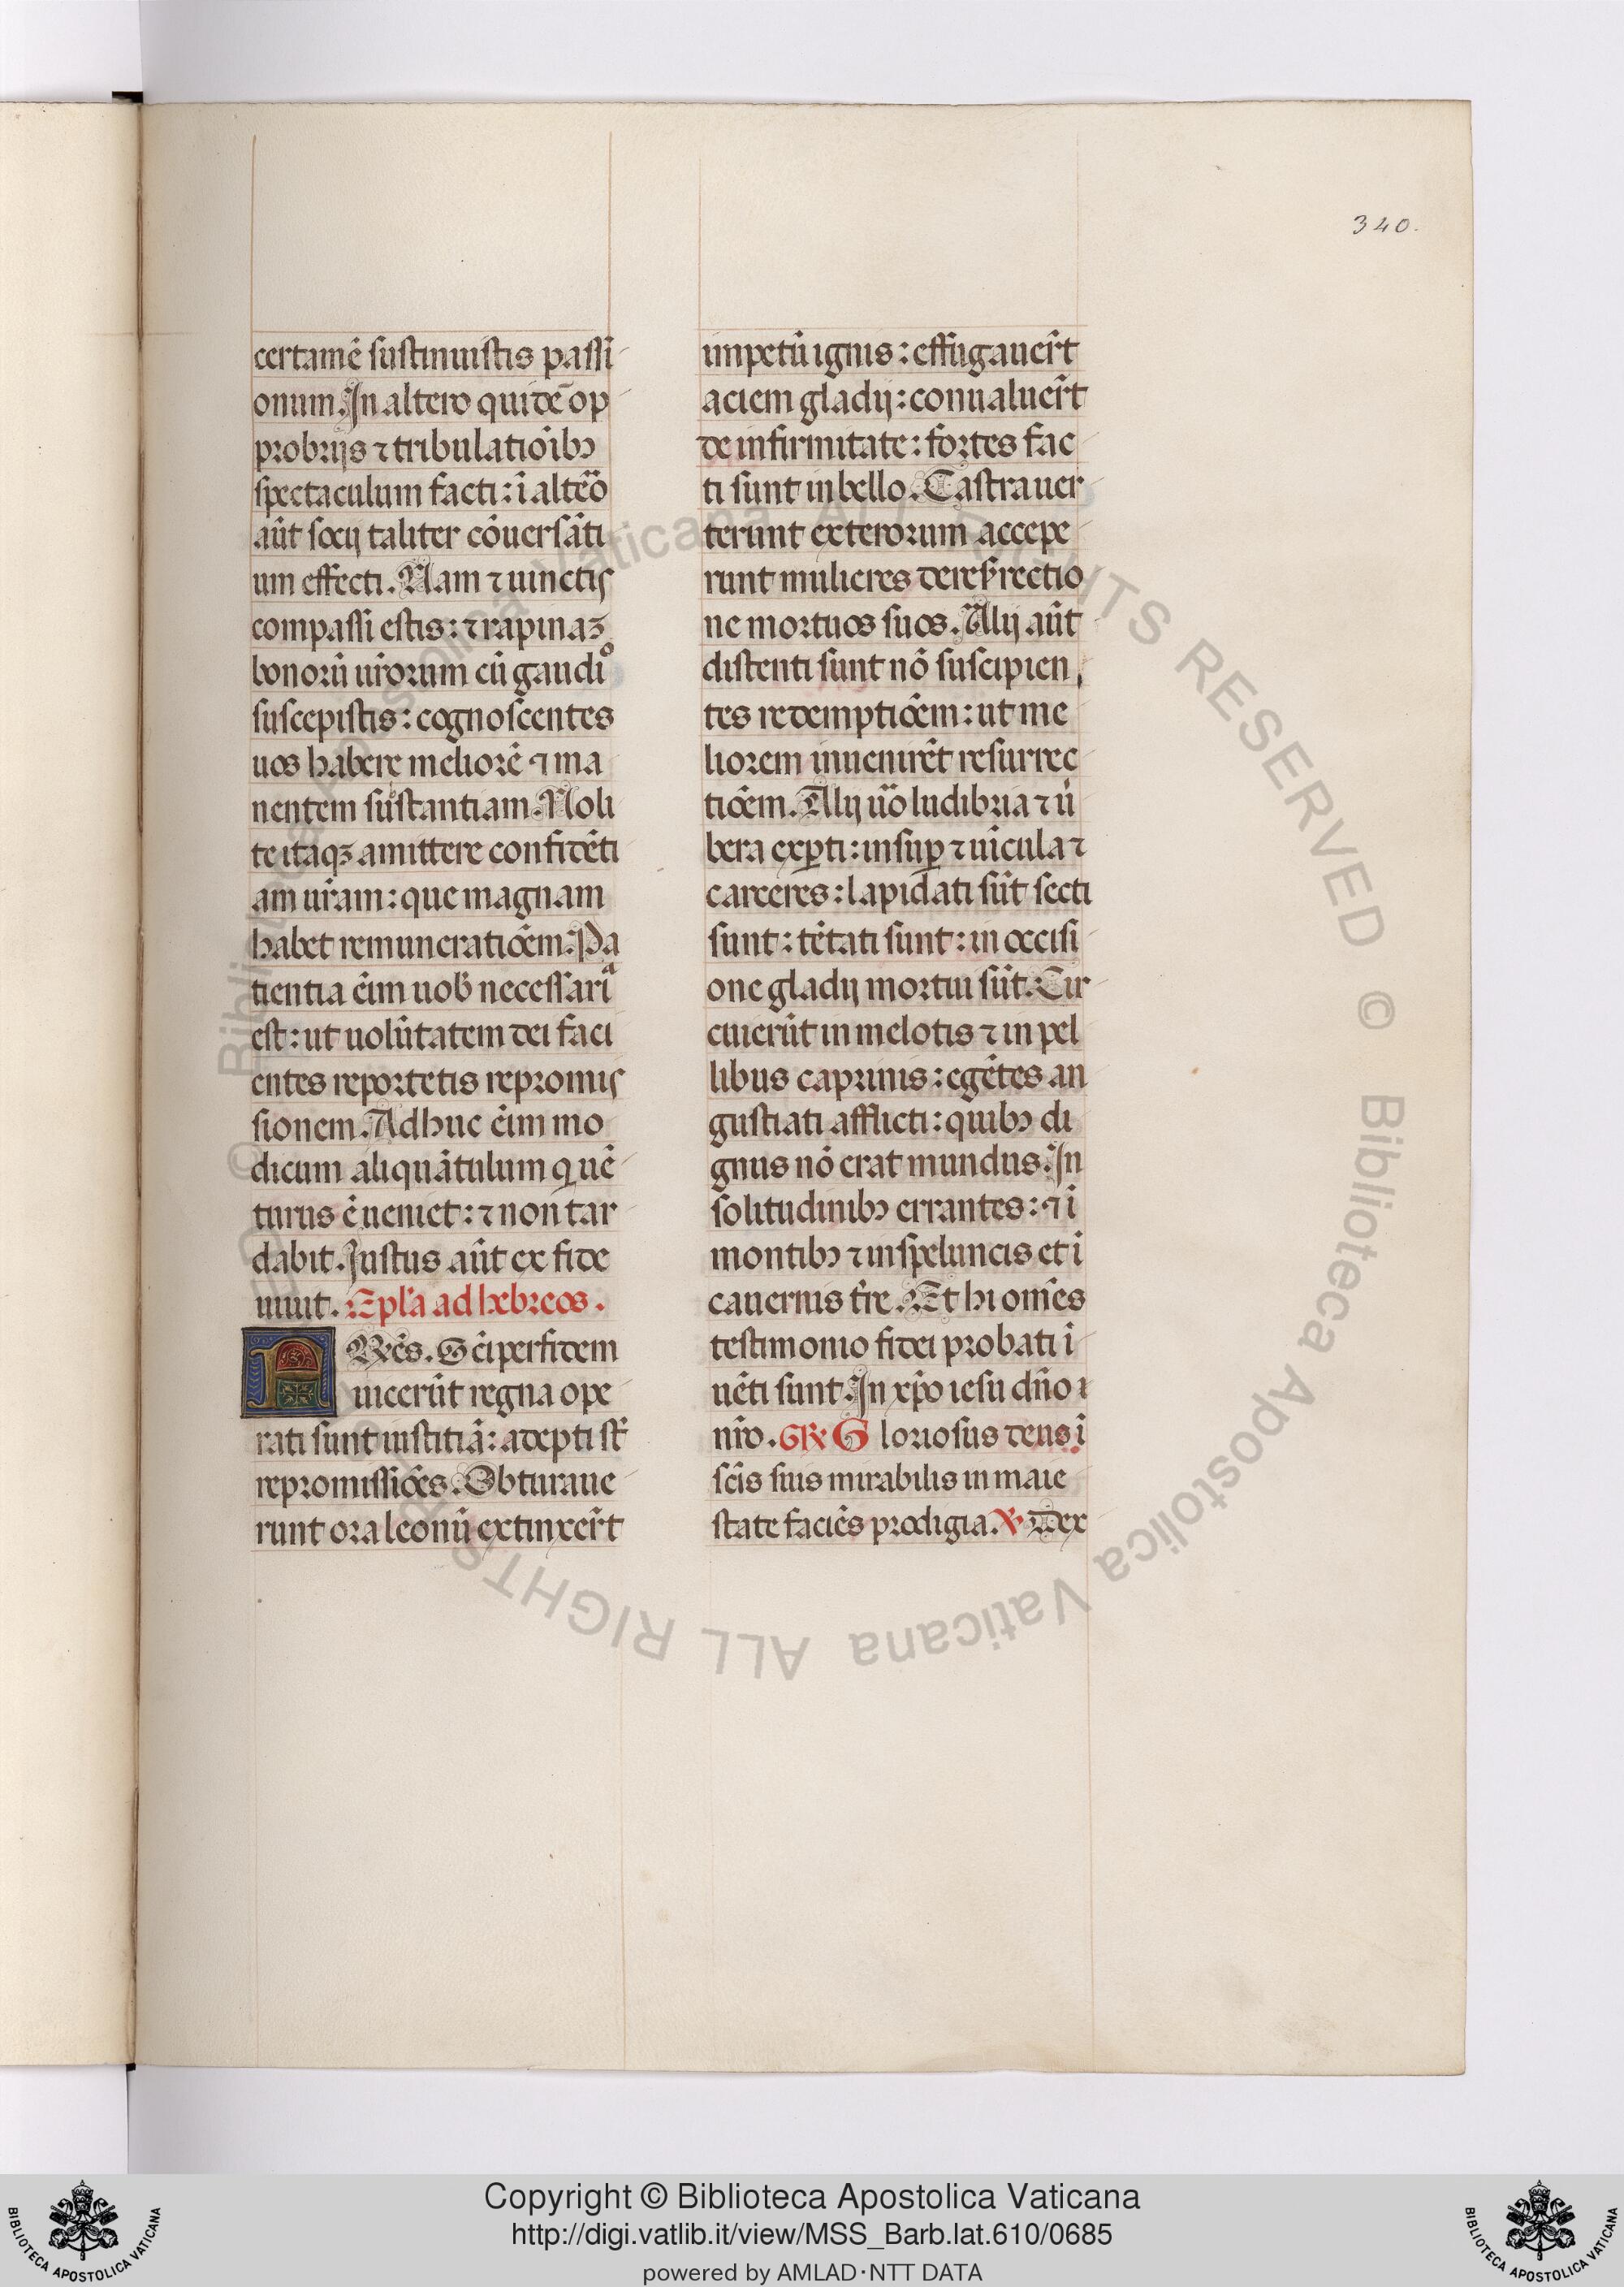 340.
certamē sustinuistis passi
onum. In altero quidē op
probrijs ⁊ tribulatiōibꝰ
spectaculum facti: ī altēo
aūt socij taliter cōuersāti
um effecti. Nam ⁊ uinctis
compassi estis: ⁊ rapinaʒ
bonorū ur̄orum cū gaudio
suscepistis: cognoscentes
uos habere meliorē ⁊ ma
nentem sūstantiam. Noli
te itaqʒ amittere confidēti
am ur̄am: que magnam
habet remuneratiōem. Pa
tientia ēim uob̄ necessaria
est: ut uolūtatem dei faci
entes reportetis repromis
sionem. Adhuc ēim mo
dicum aliquātulum q uē
turus ē ueniet: ⁊ non tar
dabit. Justus aūt ex fide
uiuit. Epl̄a ad hebreos.
FRēs. Sc̄i per fidem
uicerūt regna ope
rati sunt iustitiā: adepti st̄
repromissiōes. Obturaue
runt ora leonū extinxer̄t
impetū ignis: effugauer̄t
aciem gladij: conualuer̄t
de infirmitate: fortes fac
ti sunt in bello. Castra uer
terunt exterorum accepe
runt mulieres de resr̄rectio
ne mortuos suos. Alij aūt
distenti sunt nō suscipien
tes redemptiōem: ut me
liorem inuenirēt resurrec
tiōem. Alij ūo ludibria ⁊ ū
bera exꝑti: insuꝑ ⁊ uīcula ⁊
carceres: lapidati sūt secti
sunt: tētati sunt: in occisi
one gladij mortui sūt. Cir
cuierūt in melotis ⁊ in pel
libus caprinis: egētes an
gustiati afflicti: quibꝰ di
gnus nō erat mundus. In
solitudinibꝰ errantes: ⁊ ī
montibꝰ ⁊ in speluncis et ī
cauernis t̄re. Et hi om̄es
testimonio fidei probati ī
uēti sunt. In xp̄o iesu dn̄o
nr̄o. GR̄ Gloriosus deus ī
sc̄is suis mirabilis in maie
state faciēs prodigia. ℣ Dex
© Biblioteca Apostolica Vaticana ALL RIGHTS RESERVED © Biblioteca Apostolica Vaticana ALL RIGHTS RESERVED
Copyright © Biblioteca Apostolica Vaticana
http://digi.vatlib.it/view/MSS_Barb.lat.610/0685
powered by AMLAD·NTT DATA
BIBLIOTECA APOSTOLICA VATICANA
BIBLIOTECA APOSTOLICA VATICANA